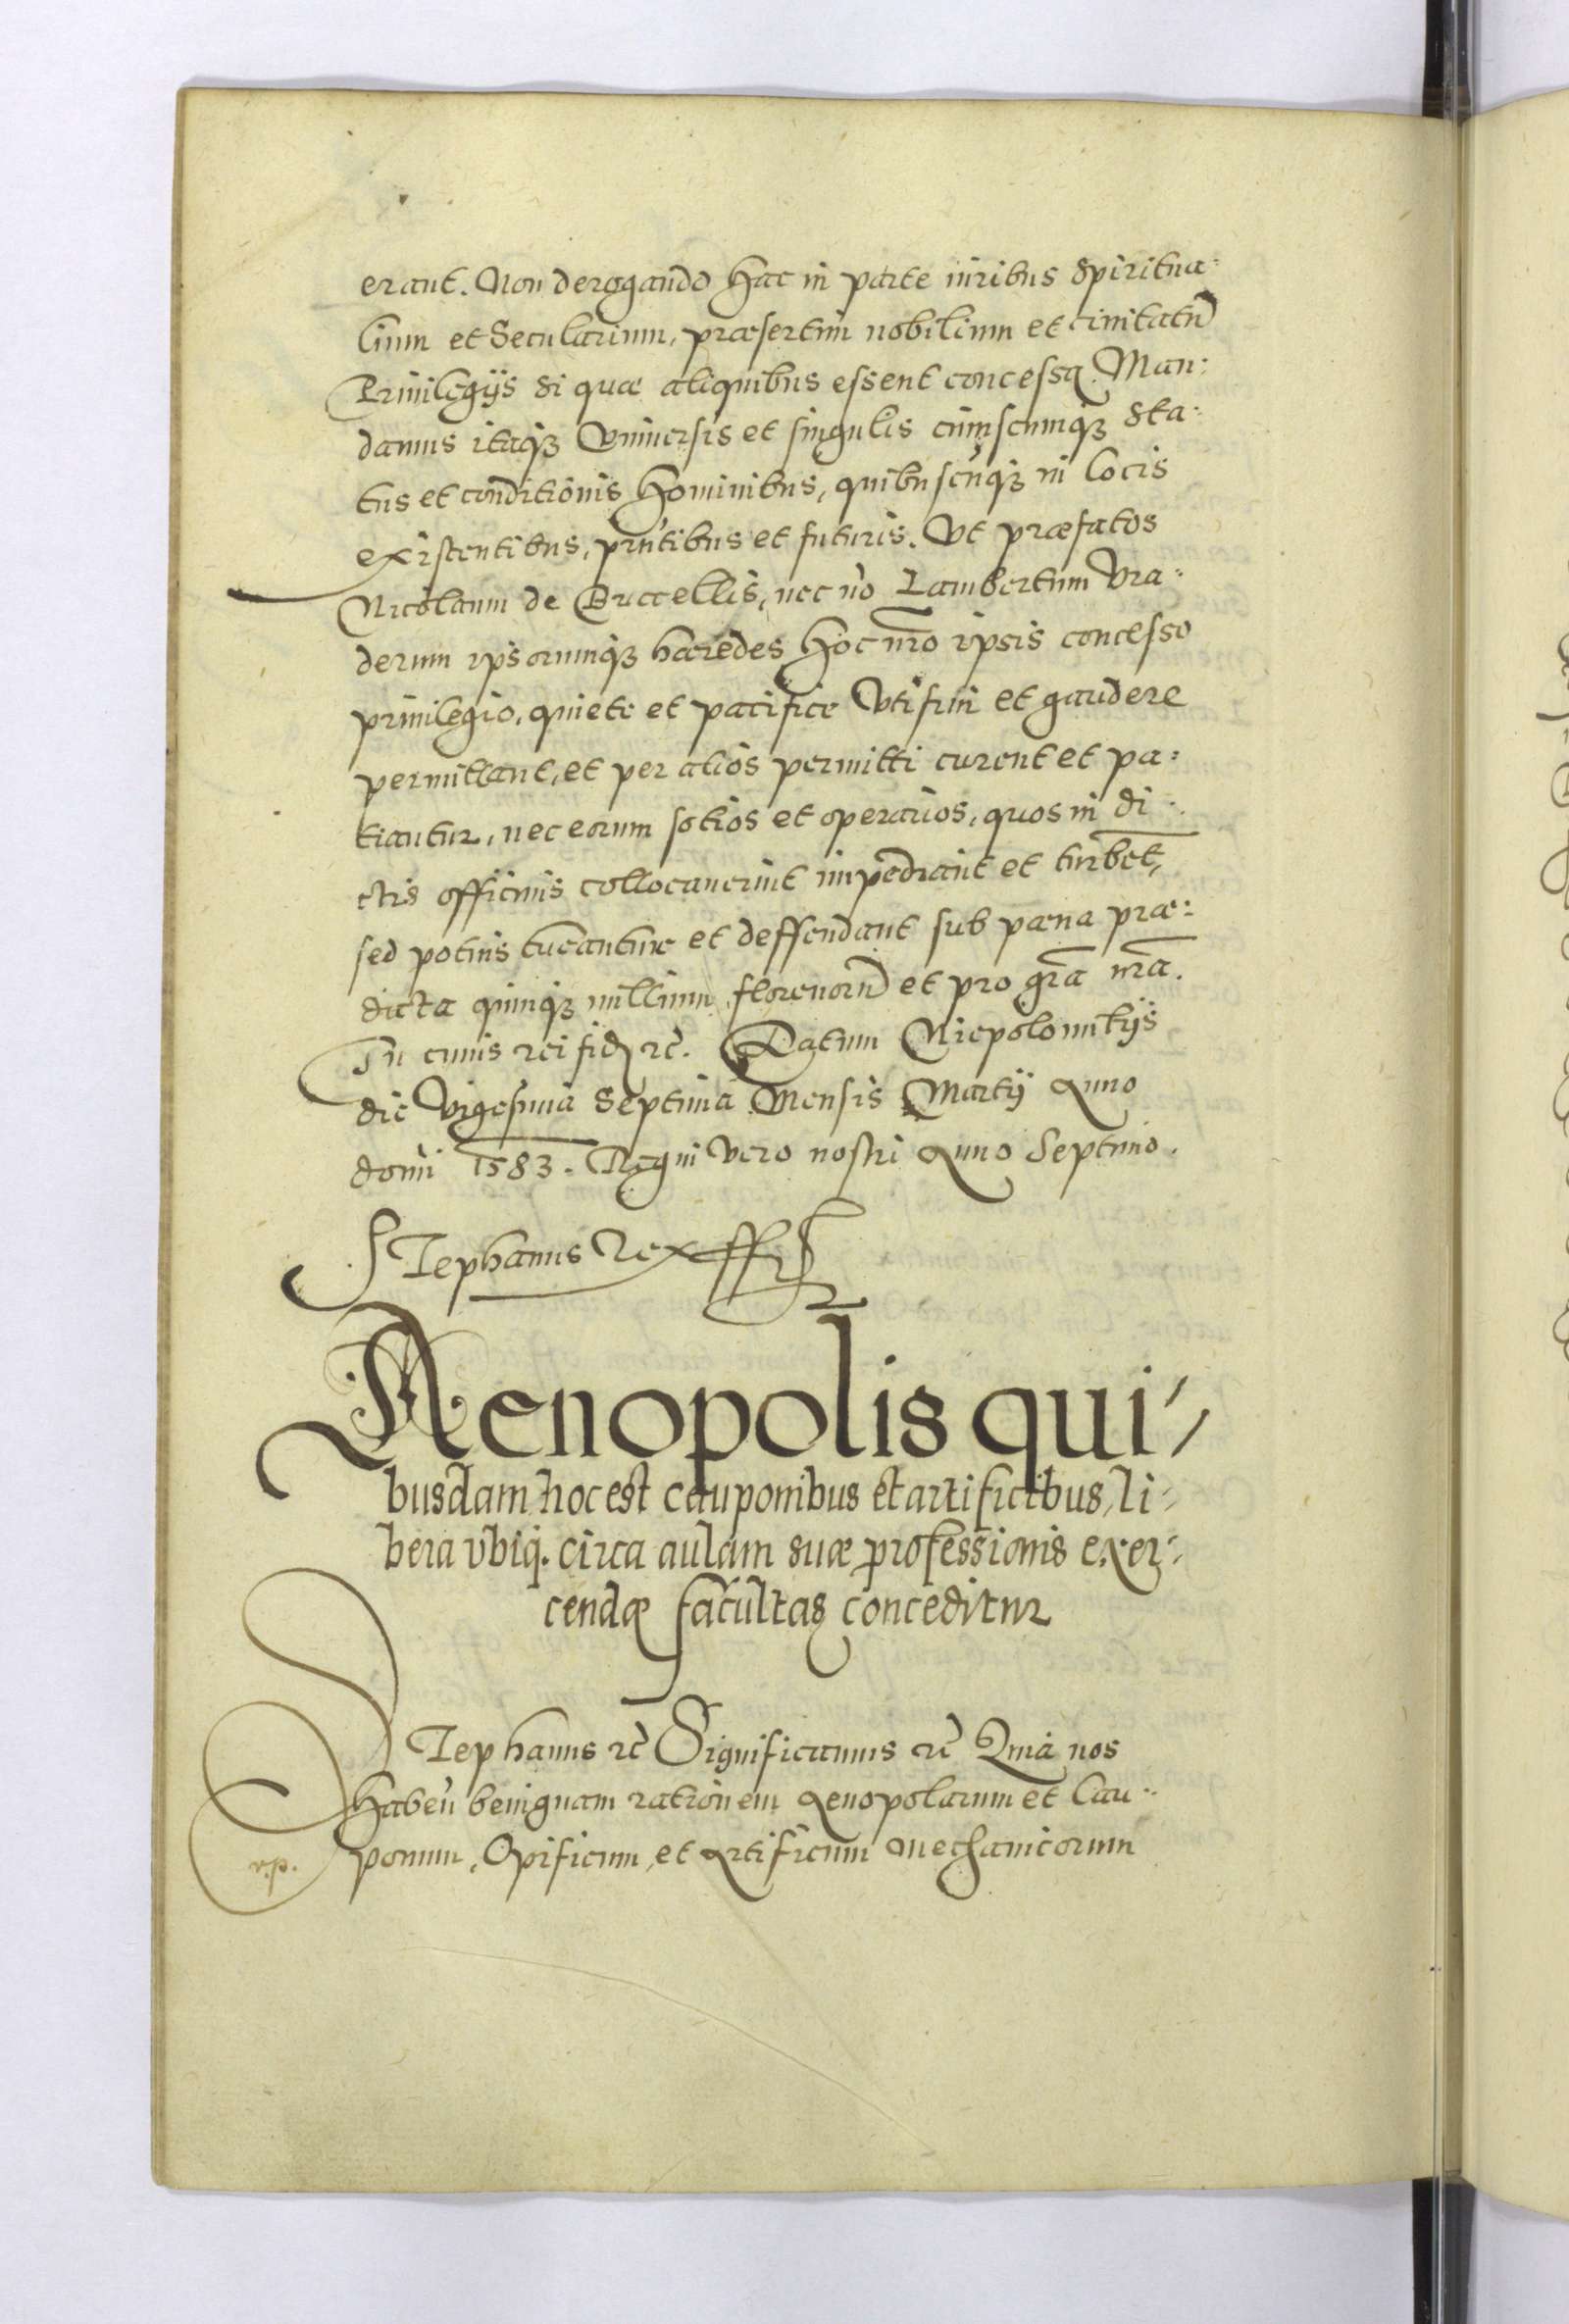 erant. Non derogando hac in parte iuribus Spiritua:
lium et Secularium, præsertim nobilium et ciuitatũ
Priuilegijs si quæ aliquibus essent concessa. Man:
damus itaqȝ Vniuersis et singulis cuiuscunqȝ Sta:
tus et conditionis hominibus, quibuscũqȝ in locis
existentibus, pñtibus et futuris. Vt præfatos
Nicolaum de Buccellis, nec nõ Lambertum Vra:
derum ipsorumqȝ hæredes hoc nr̃o ipsis concesso
priuilegio, quiete et pacifice Vti frui et gaudere
permittant, et per alios permitti curent et pa:
tiantur, nec eorum sotios et operarios, quos in di:
ctis officinis collocauerint impediant et turbẽt,
sed potius tueantur et deffendant sub pæna præ:
dicta quinqȝ millium florenorũ et pro gr̃a nr̃a.
In cuius rei fidẽ rc̃. Datum Niepolomitijs
die Vigesima Septima Mensis Martij Anno
domĩ 1583. Regni Vero nostri Anno Septimo.
Stephanus Rex sst
Aenopolis qui:
busdam hoc est cauponibus et artificibus, li:
bera vbiq. circa aulam suæ professionis exer:
cendæ facultas conceditur
Stephanus rc̃ Significamus rc̃ Quia nos
habẽn benignam rationem Aenopolarum et Cau:
ponum, Opificum, et Artificum Mechanicorum